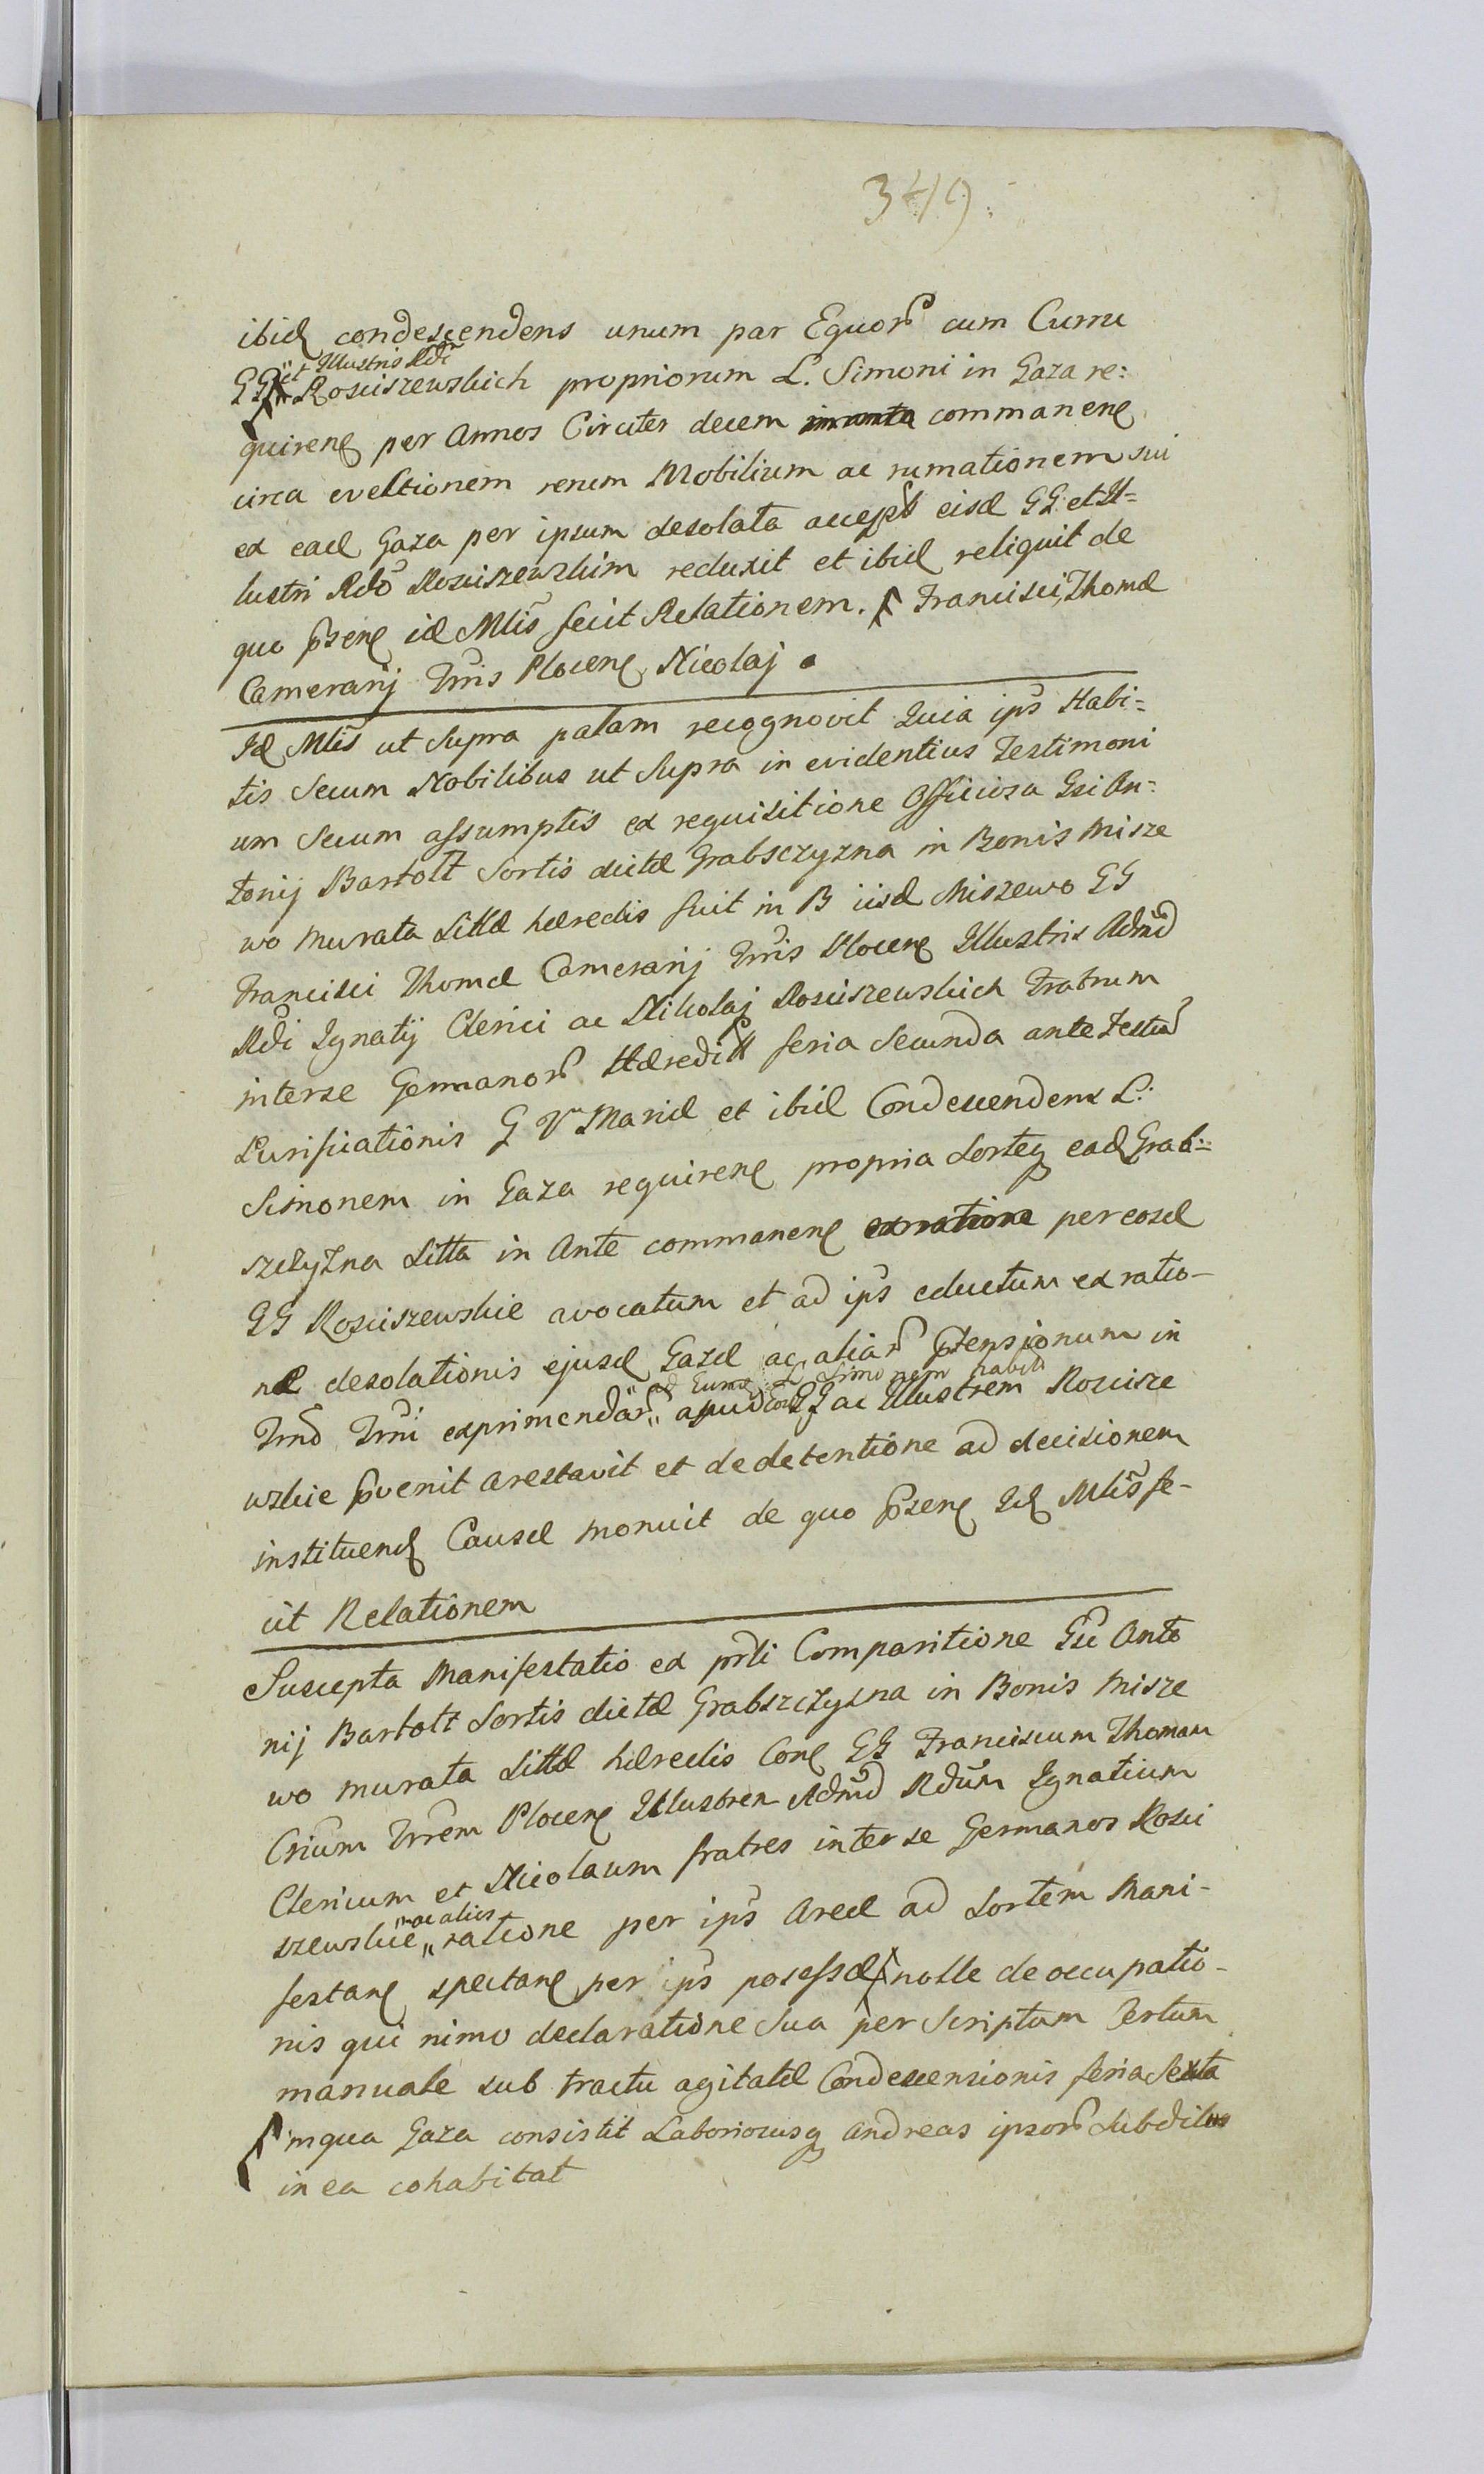 349.
ibid condescendens unum par Equor cum Curru
GG et Illustris Rdi Rosciszewskich propriorum L. Simoni in Gaza re:
quirens per Annos Circiter decem commanens
circa evectionem rerum Mobilium ac rumationem sui
ex ead Gaza per ipsum desolata accept eisd GG et Il=
lustri Rdo Rosciszewskim reduxit et ibid reliquit de
quo psens id Mlis fecit Relationem. Francisci, Thomæ
Camerarij Trris Plocens, Nicolaj
Id Mlis ut Supra palam recognovit Quia ips Habi=
tis Secum Nobilibus ut Supra in evidentius Testimoni
um Secum assumptis ex requisitione Officiosa Gsi An=
tonij Bartolt Sortis dictæ Grabsczyzna in Bonis Misze
wo Murata Sittæ hæredis fuit in B iisd Miszewo GG
Francisci Thomæ Camerarij Trris Plocens Illustris Admd
Rdi Ignatij Clerici ac Nikolaj Rosciszewskich Fratrum
interse Germanor Hæredit feria Secunda ante Festu
Purificationis G V Mariæ et ibid Condescendens L:
Simonem in Gaza requirens propria Sorteq ead Grab=
szczyzna Sitta in Ante commanens per eosd
GG Rosciszewskie avocatum et ad ips eductum ex ratio-
næ desolationis ejusd Gazæ ac aliar ptensionum in
ad Eund L Simonem habit
Trmo Trmi exprimendar apud eosd GG ac Illustrem Roscisze
wskie pvenit arestavit et de detentione ad decisionem
instituend Causæ monuit de quo psens Id Mlis fe-
cit Relationem
Suscepta Manifestatio ex prti Comparitione Gsi Anto
nij Bartolt Sortis dictæ Grabszczyzna in Bonis Misze
wo murata Sittæ hæredis Cone GG Franciscum Thomam
Crium Trrem Plocens Illustrem Admd Rdum Ignatium
Clericum et Nicolaum fratres inter se Germanos Rosci
ac alios
szewskie ratione per ips Areæ ad Sortem Mani-
festans spectans per ips posessæ nolle de occupatio-
nis qui nimo declaratione Sua per Scriptum Certum
manuale sub tractu agitatæ Condescensionis feria Sexta
in qua Gaza consistit Laboriosusq Andreas ipsor Subditus
in ea cohabitat